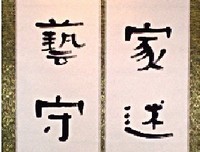 家述
藝守